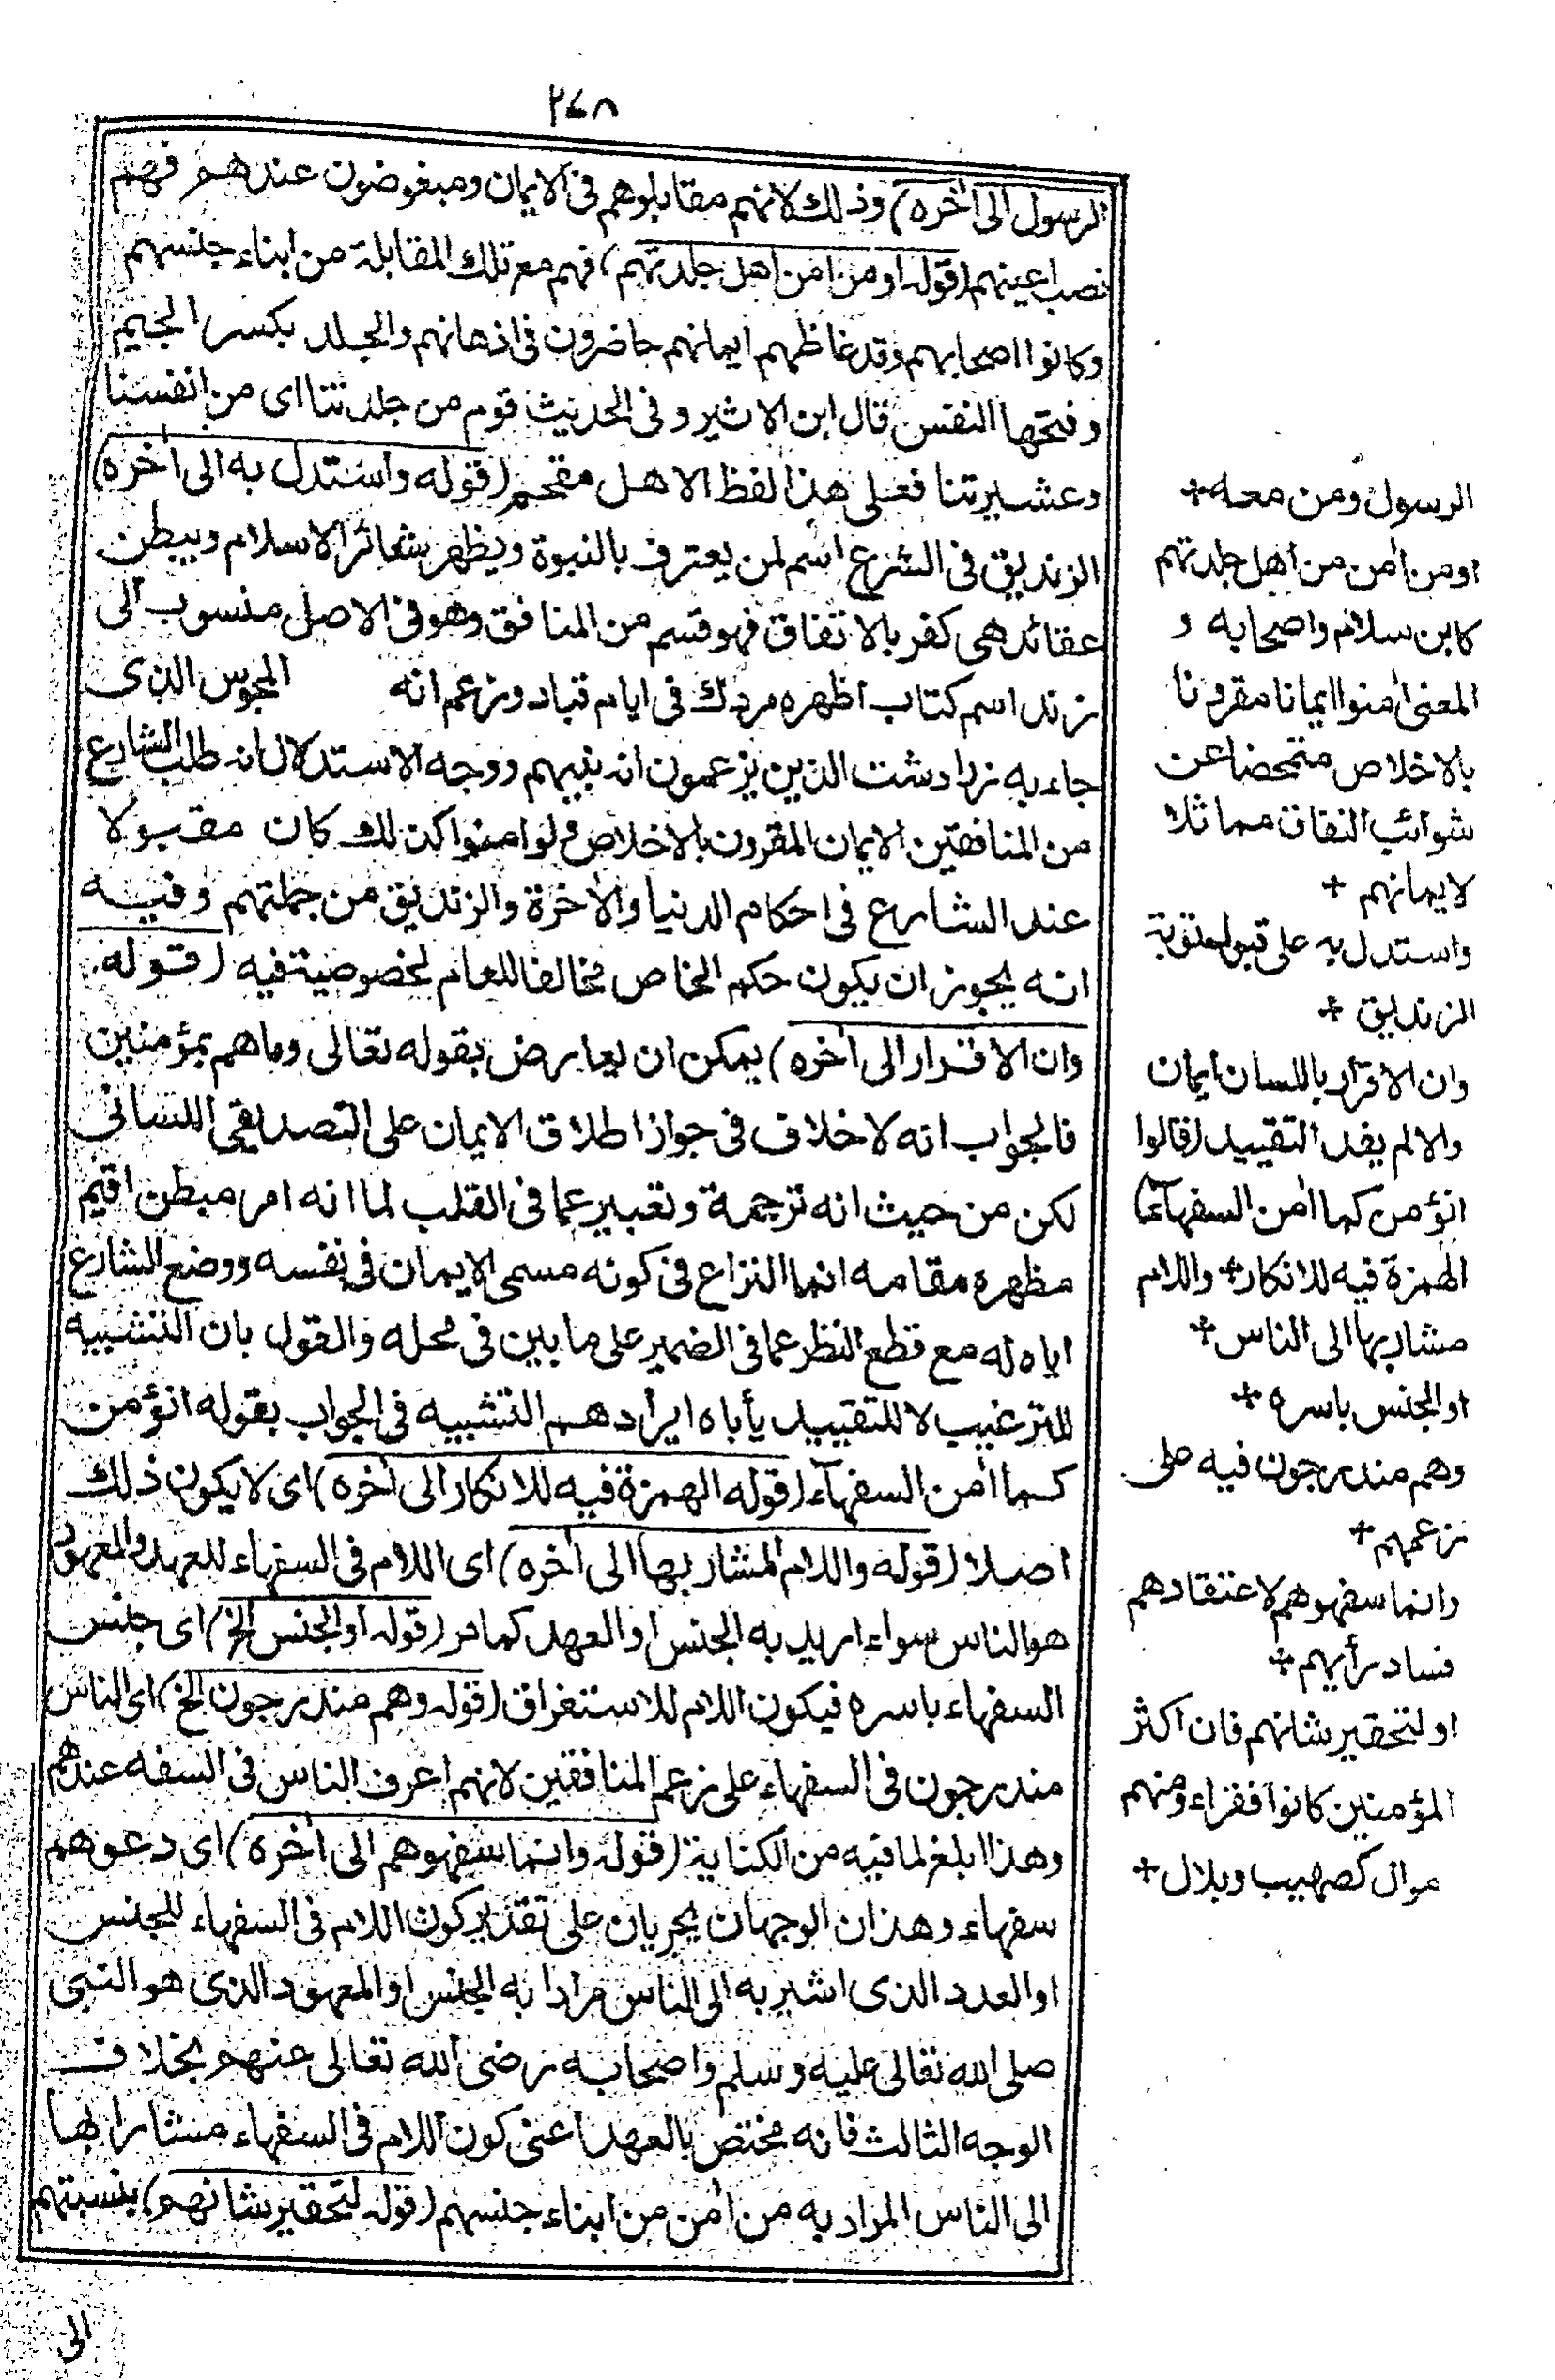 ٢٤٨
الرسول الى اخره) وذلك لانهم مقابلوهم فى الايمان ومبغوضون عندهم فهم
نصب اعينهم (قوله او من امن اهل جلدتهم) فهم مع تلك المقابلة من ابناء جنسهم
وكانوا اصحابهم وقد غاظهم ايمانهم حاضرون فى اذهانهم والجلد بكسر الجيم
وفتحها النفس قال ابن الاثير وفى الحديث قوم من جلدتنا اى من انفسنا
وعشيرتنا فعلى هذا لفظ الاهل مقحم (قوله واستدل به الى اخره)
الزنديق فى الشرع اسم لمن يعترف بالنبوة ويظهر شعائر الاسلام ويبطن
عقائد هى كفر بالاتفاق فهو قسم من المنافق وهو فى الاصل منسوب الى
زند اسم كتاب اظهره مردك فى ايام قباد وزعم انه المجوس الذى
جاء به زرادشت الذين يزعمون انه نبيهم ووجه الاستدلال انه طلب الشارع
من المنافقين الايمان المقرون بالاخلاص ولو امنوا كذلك كان مقبولا
عند الشارع فى احكام الدنيا والاخرة والزنديق من جملتهم وفيه
انه يجوز ان يكون حكم الخاص مخالفا للعام لخصوصية فيه (قوله
وان الاقرار الى اخره) يمكن ان يعارض بقوله تعالى وماهم بمؤمنين
فالجواب انه لا خلاف فى جواز اطلاق الايمان على التصديق اللسانى
لكن من حيث انه ترجمة وتعبير عما فى القلب لما انه امر مبطن اقيم
مظهره مقامه انما النزاع فى كونه مسمى الايمان فى نفسه ووضع الشارع
اياه له مع قطع النظر عما فى الضمير على ما بين فى محله والقول بان التشبيه
للترغيب لا للتقييد يأباه ايرادهم التشبيه فى الجواب بقوله انؤمن
كما امن السفهآء (قوله الهمزة فيه للانكار الى اخره) اى لا يكون ذلك
اصلا (قوله واللام المشار بها الى اخره) اى اللام فى السفهاء للعهد والمعهود
هو الناس سواء اريد به الجنس او العهد كما مر (قوله او الجنس الخ) اى جنس
السفهاء باسره فيكون اللام للاستغراق (قوله وهم مندرجون الخ) اى الناس
مندرجون فى السفهاء على زعم المنافقين لانهم اعرف الناس فى السفه عندهم
وهذا ابلغ لما فيه من الكناية (قوله وانما سفهوهم الى اخره) اى دعوهم
سفهاء وهذان الوجهان يجريان على تقدير كون اللام فى السفهاء للجنس
او العدد الذى اشير به الى الناس مرادا به الجنس او المعهود الذى هو النبى
صلى الله تعالى عليه وسلم واصحابه رضى الله تعالى عنهم بخلاف
الوجه الثالث فانه مختص بالعهد اعنى كون اللام فى السفهاء مشارا بها
الى الناس المراد به من امن من ابناء جنسهم (قوله لتحقير شانهم) بنسبتهم
الى
الرسول ومن معه +
او من امن من اهل جلدتهم
كابن سلام واصحابه و
المعنى امنوا ايمانا مقرونا
بالاخلاص متمحضا عن
شوائب النفاق مماثلا
لايمانهم +
واستدل به على قبول توبة
الزنديق +
وان الاقرار باللسان ايمان
والا لم يفد التقييد (قالوا
انؤمن كما امن السفهآء)
الهمزة فيه للانكار + واللام
مشار بها الى الناس +
او الجنس باسره +
وهم مندرجون فيه على
زعمهم +
وانما سفهوهم لاعتقادهم
فساد رأيهم +
او لتحقير شانهم فان اكثر
المؤمنين كانوا فقراء ومنهم
موال كصهيب وبلال +